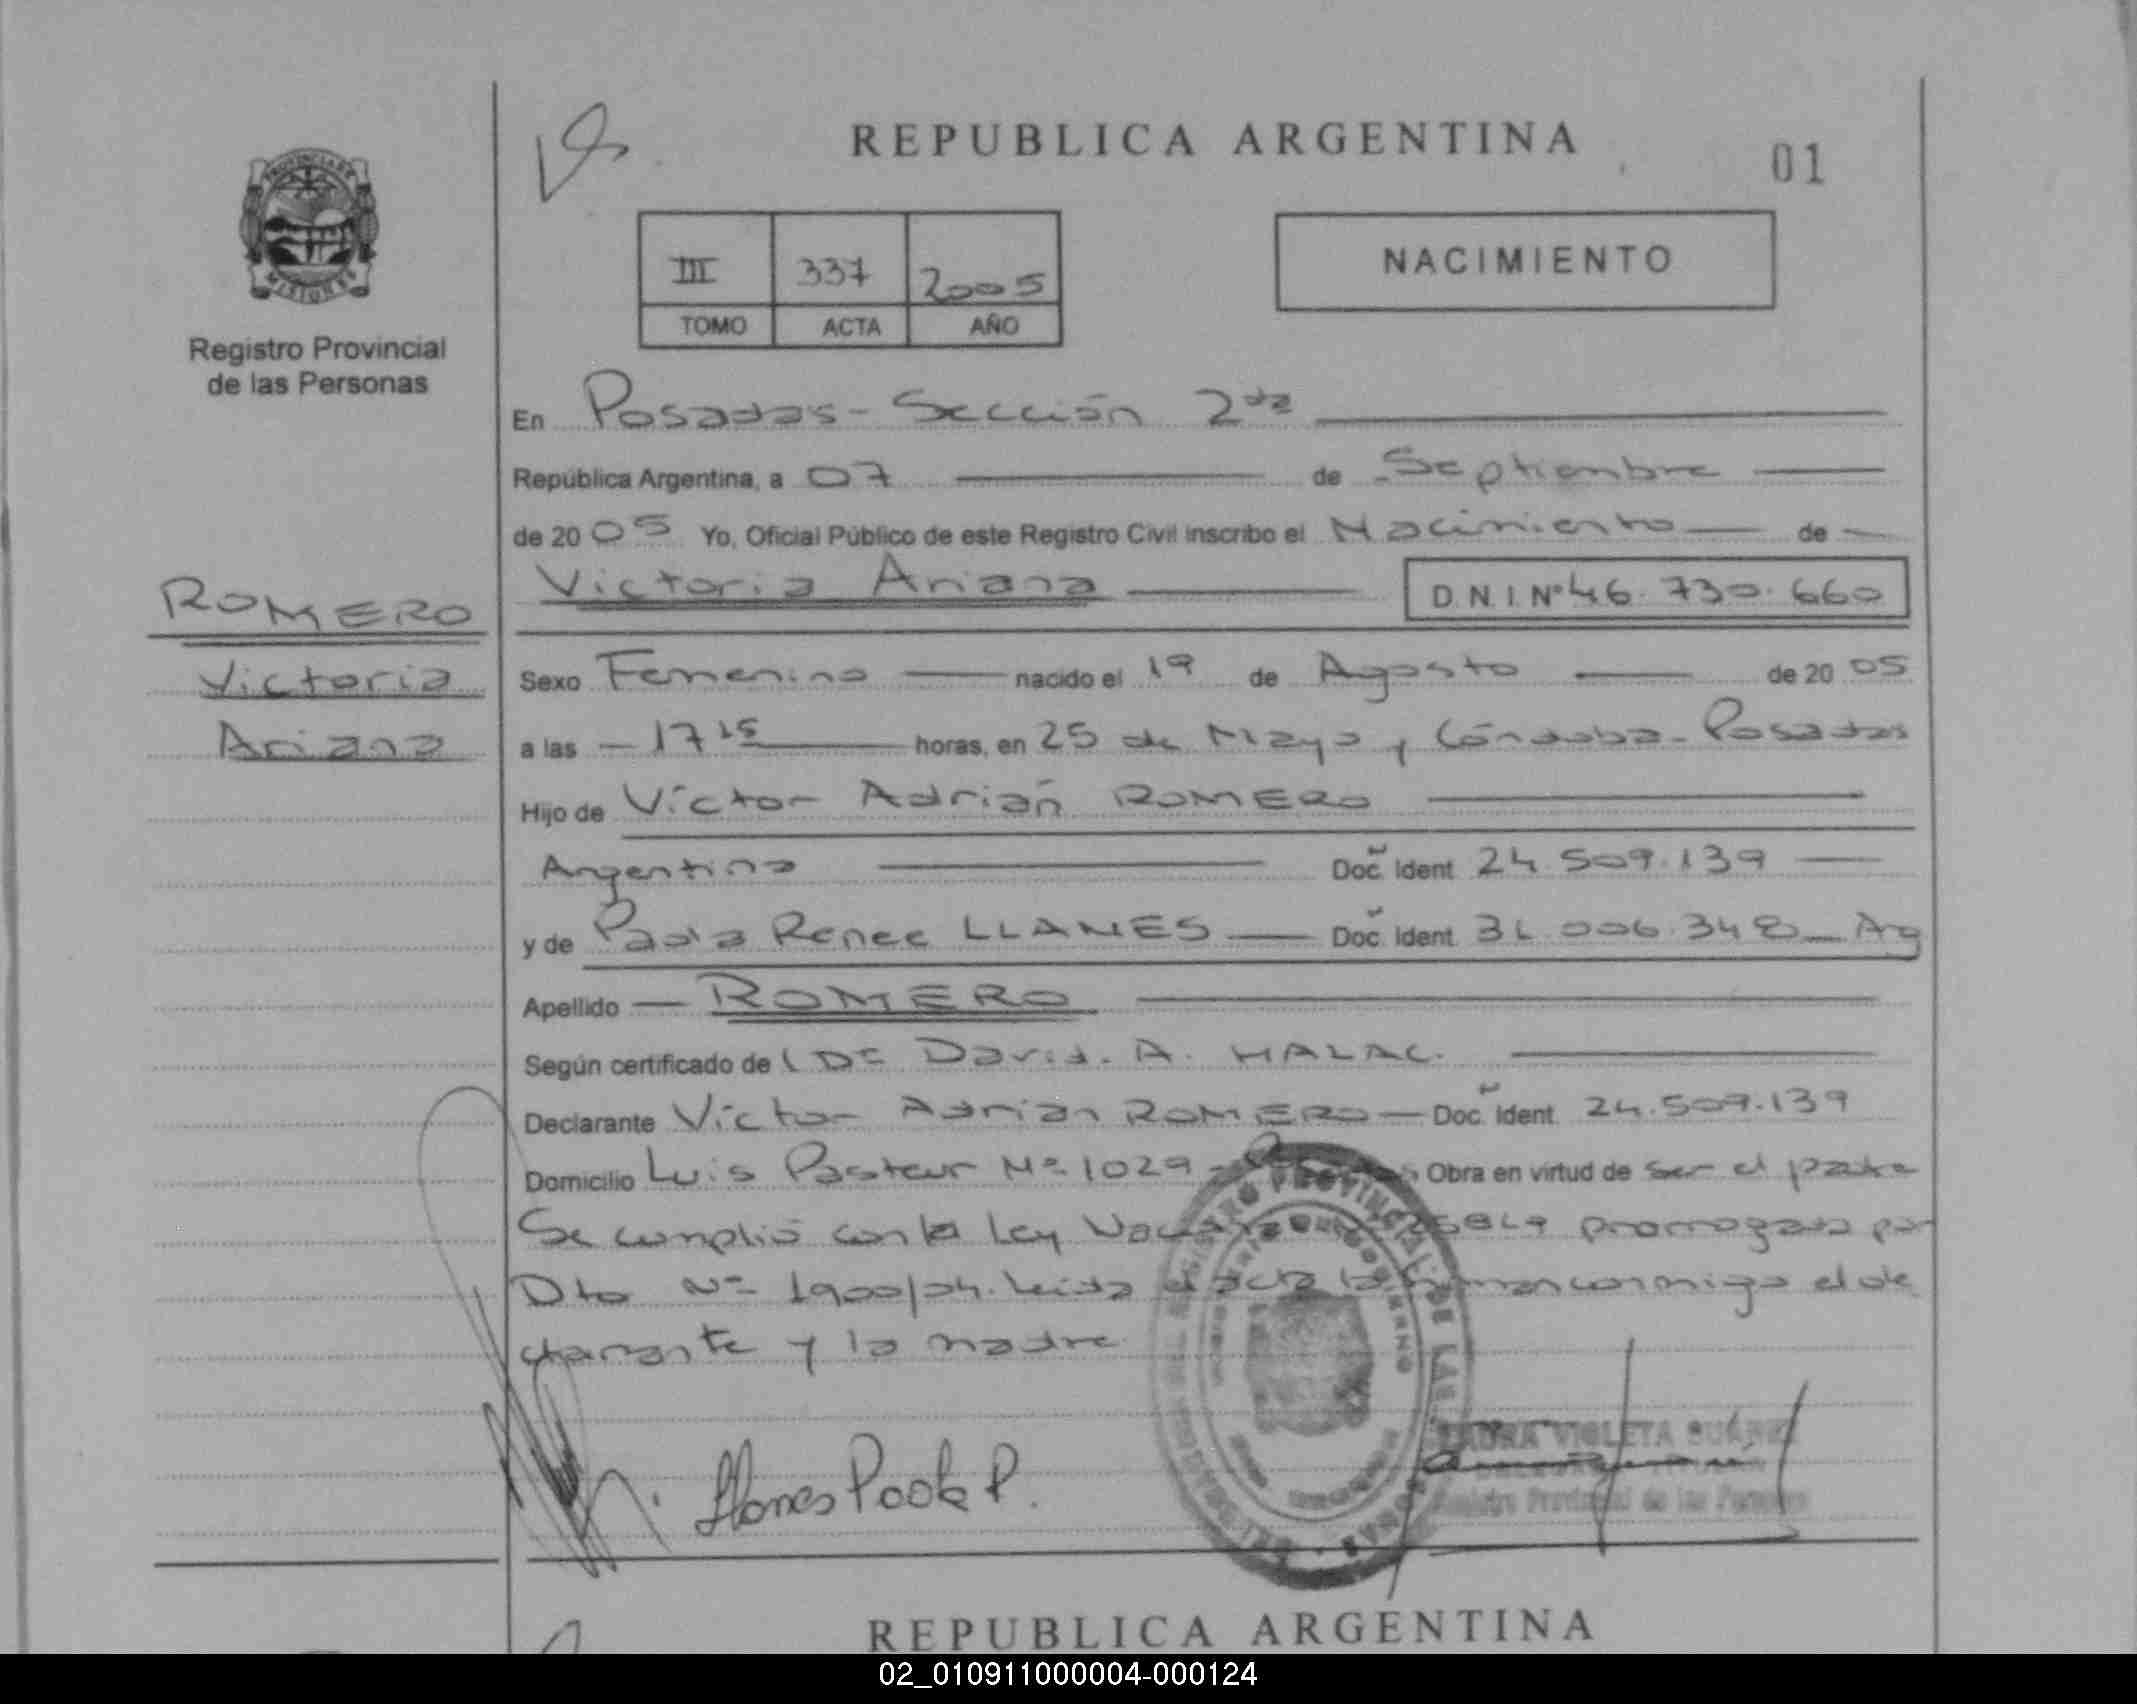 REPUBLICA ARGENTINA
01
PROVINCIA DE
MISIONES
Registro Provincial
de las Personas
III 337 2005
TOMO ACTA AÑO
NACIMIENTO
En Posadas - Sección 2da
República Argentina, a 07 de Septiembre
de 2005 Yo, Oficial Público de este Registro Civil inscribo el Nacimiento de
ROMERO
Victoria
Ariana
Victoria Ariana D.N.I. Nº 46.730.660
Sexo Femenino nacido el 19 de Agosto de 2005
a las 17 15 horas, en 25 de Mayo y Córdoba - Posadas
Hijo de Víctor Adrián ROMERO
Argentino Doc. Ident. 24.509.139
y de Paola Renee LLANES Doc. Ident. 31.006.348 - Arg
Apellido ROMERO
Según certificado de David. A. HALAC.
Declarante Víctor Adrián ROMERO Doc. Ident. 24.509.139
Domicilio Luis Pasteur Nº 1029 - Obra en virtud de ser el padre
Se cumplió con la Ley prorrogada por
Dto Nº 1900/04. Leída el acta la firman conmigo el de
clarante y la madre
Llanes Paola R.
LAURA VIOLETA SUÁREZ
Registro Provincial de las Personas
REPUBLICA ARGENTINA
02_010911000004-000124